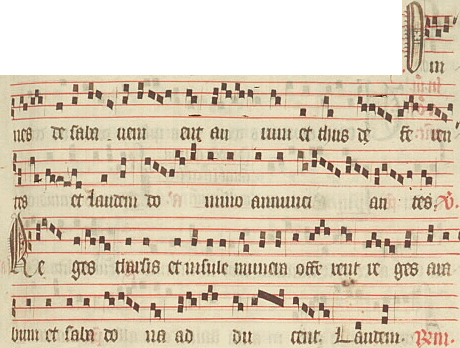 Om
nes de saba veni ent au rum et thus de fe ren
tes et laudem do mino annunti an tes. V.
Re ges tharsis et insule munera offe rent re ges ara
bum et saba do na ad du cent. Laudem.